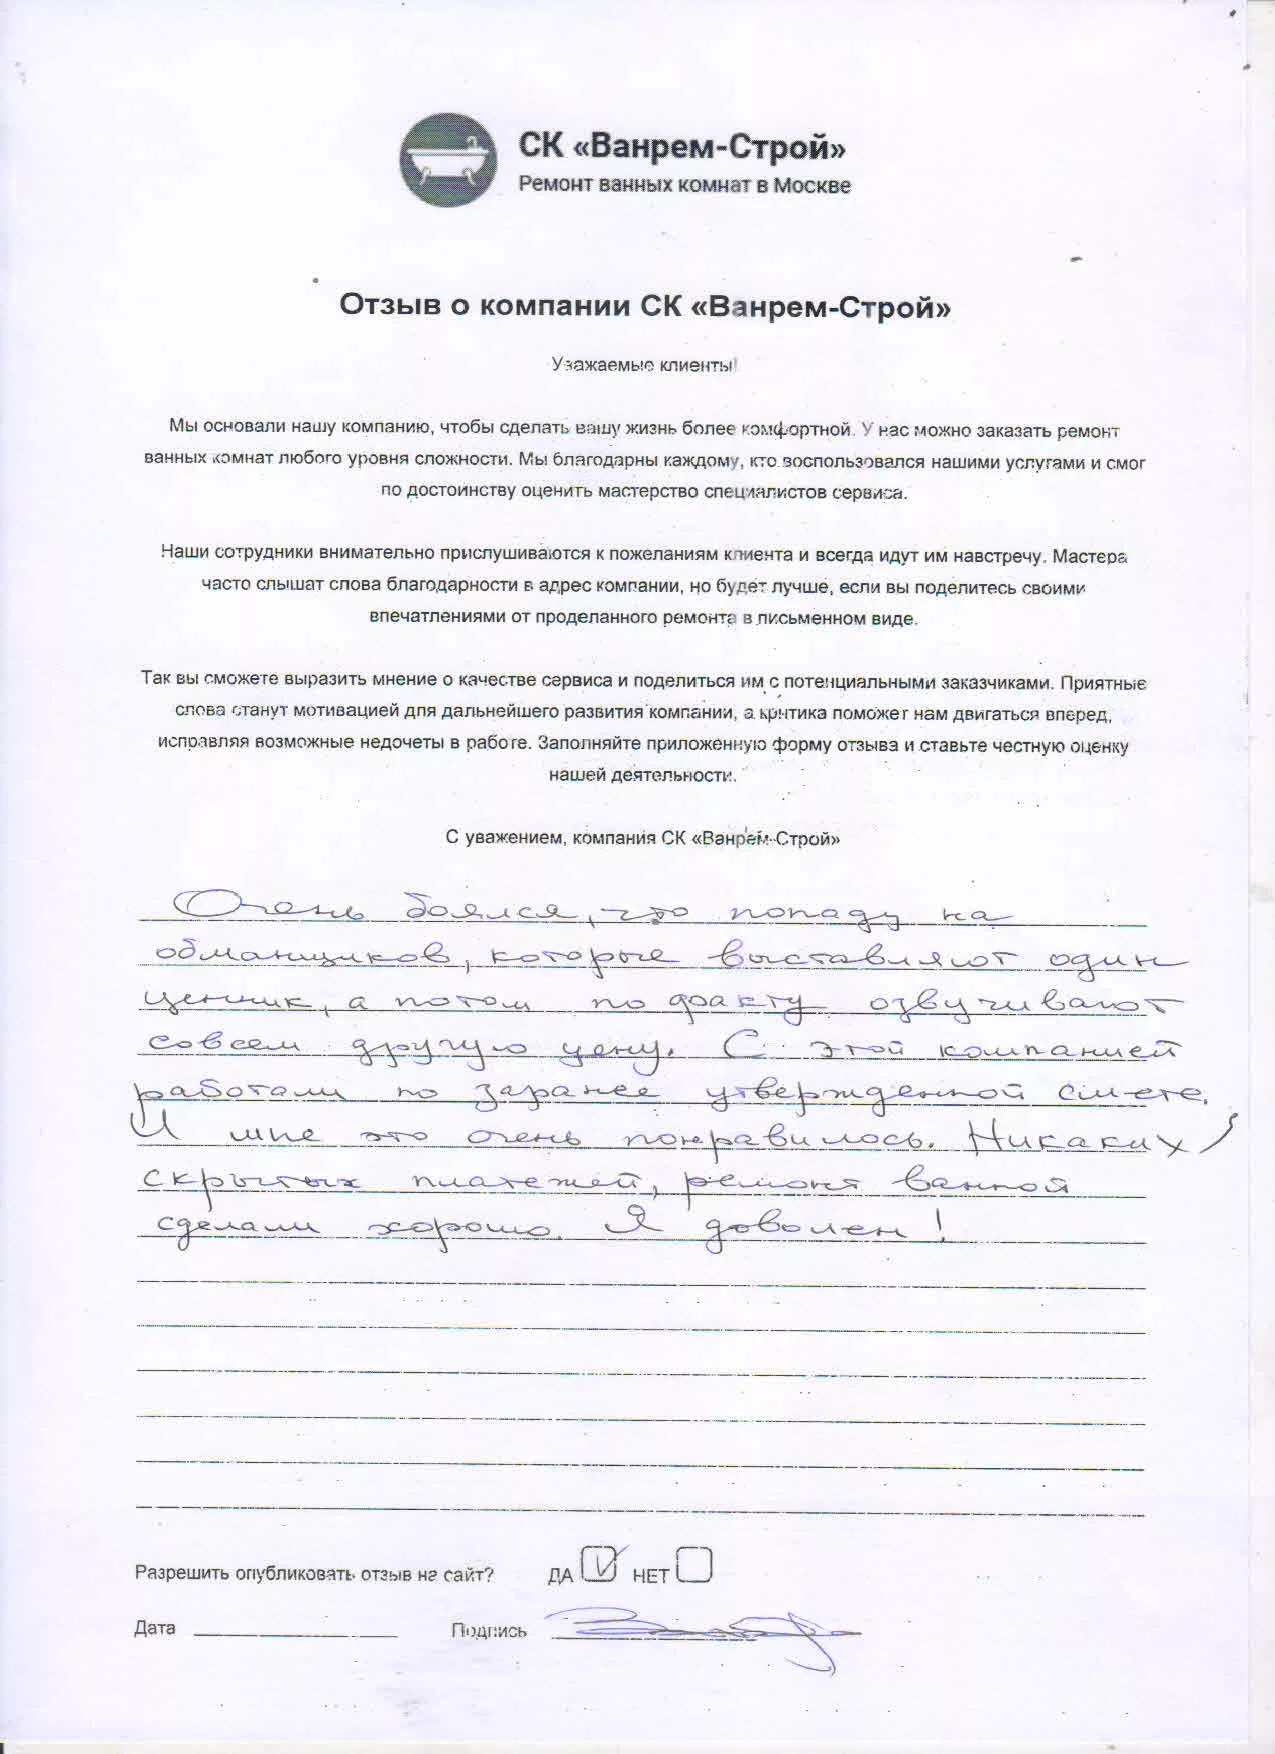 СК «Ванрем-Строй»
Ремонт ванных комнат в Москве
Отзыв о компании СК «Ванрем-Строй»
Уважаемые клиенты!
Мы основали нашу компанию, чтобы сделать вашу жизнь более комфортной. У нас можно заказать ремонт
ванных комнат любого уровня сложности. Мы благодарны каждому, кто воспользовался нашими услугами и смог
по достоинству оценить мастерство специалистов сервиса.
Наши сотрудники внимательно прислушиваются к пожеланиям клиента и всегда идут им навстречу. Мастера
часто слышат слова благодарности в адрес компании, но будет лучше, если вы поделитесь своими
впечатлениями от проделанного ремонта в письменном виде.
Так вы сможете выразить мнение о качестве сервиса и поделиться им с потенциальными заказчиками. Приятные
слова станут мотивацией для дальнейшего развития компании, а критика поможет нам двигаться вперед,
исправляя возможные недочеты в работе. Заполняйте приложенную форму отзыва и ставьте честную оценку
нашей деятельности.
С уважением, компания СК «Ванрем-Строй»
Очень боялся, что попаду на
обманщиков, которые выставляют один
ценник, а потом по факту озвучивают
совсем другую цену. С этой компанией
работали по заранее утвержденной смете.
И мне это очень понравилось. Никаких
скрытых платежей, ремонт ванной
сделали хорошо. Я доволен!
Разрешить опубликовать отзыв на сайт? ДА НЕТ
Дата Подпись